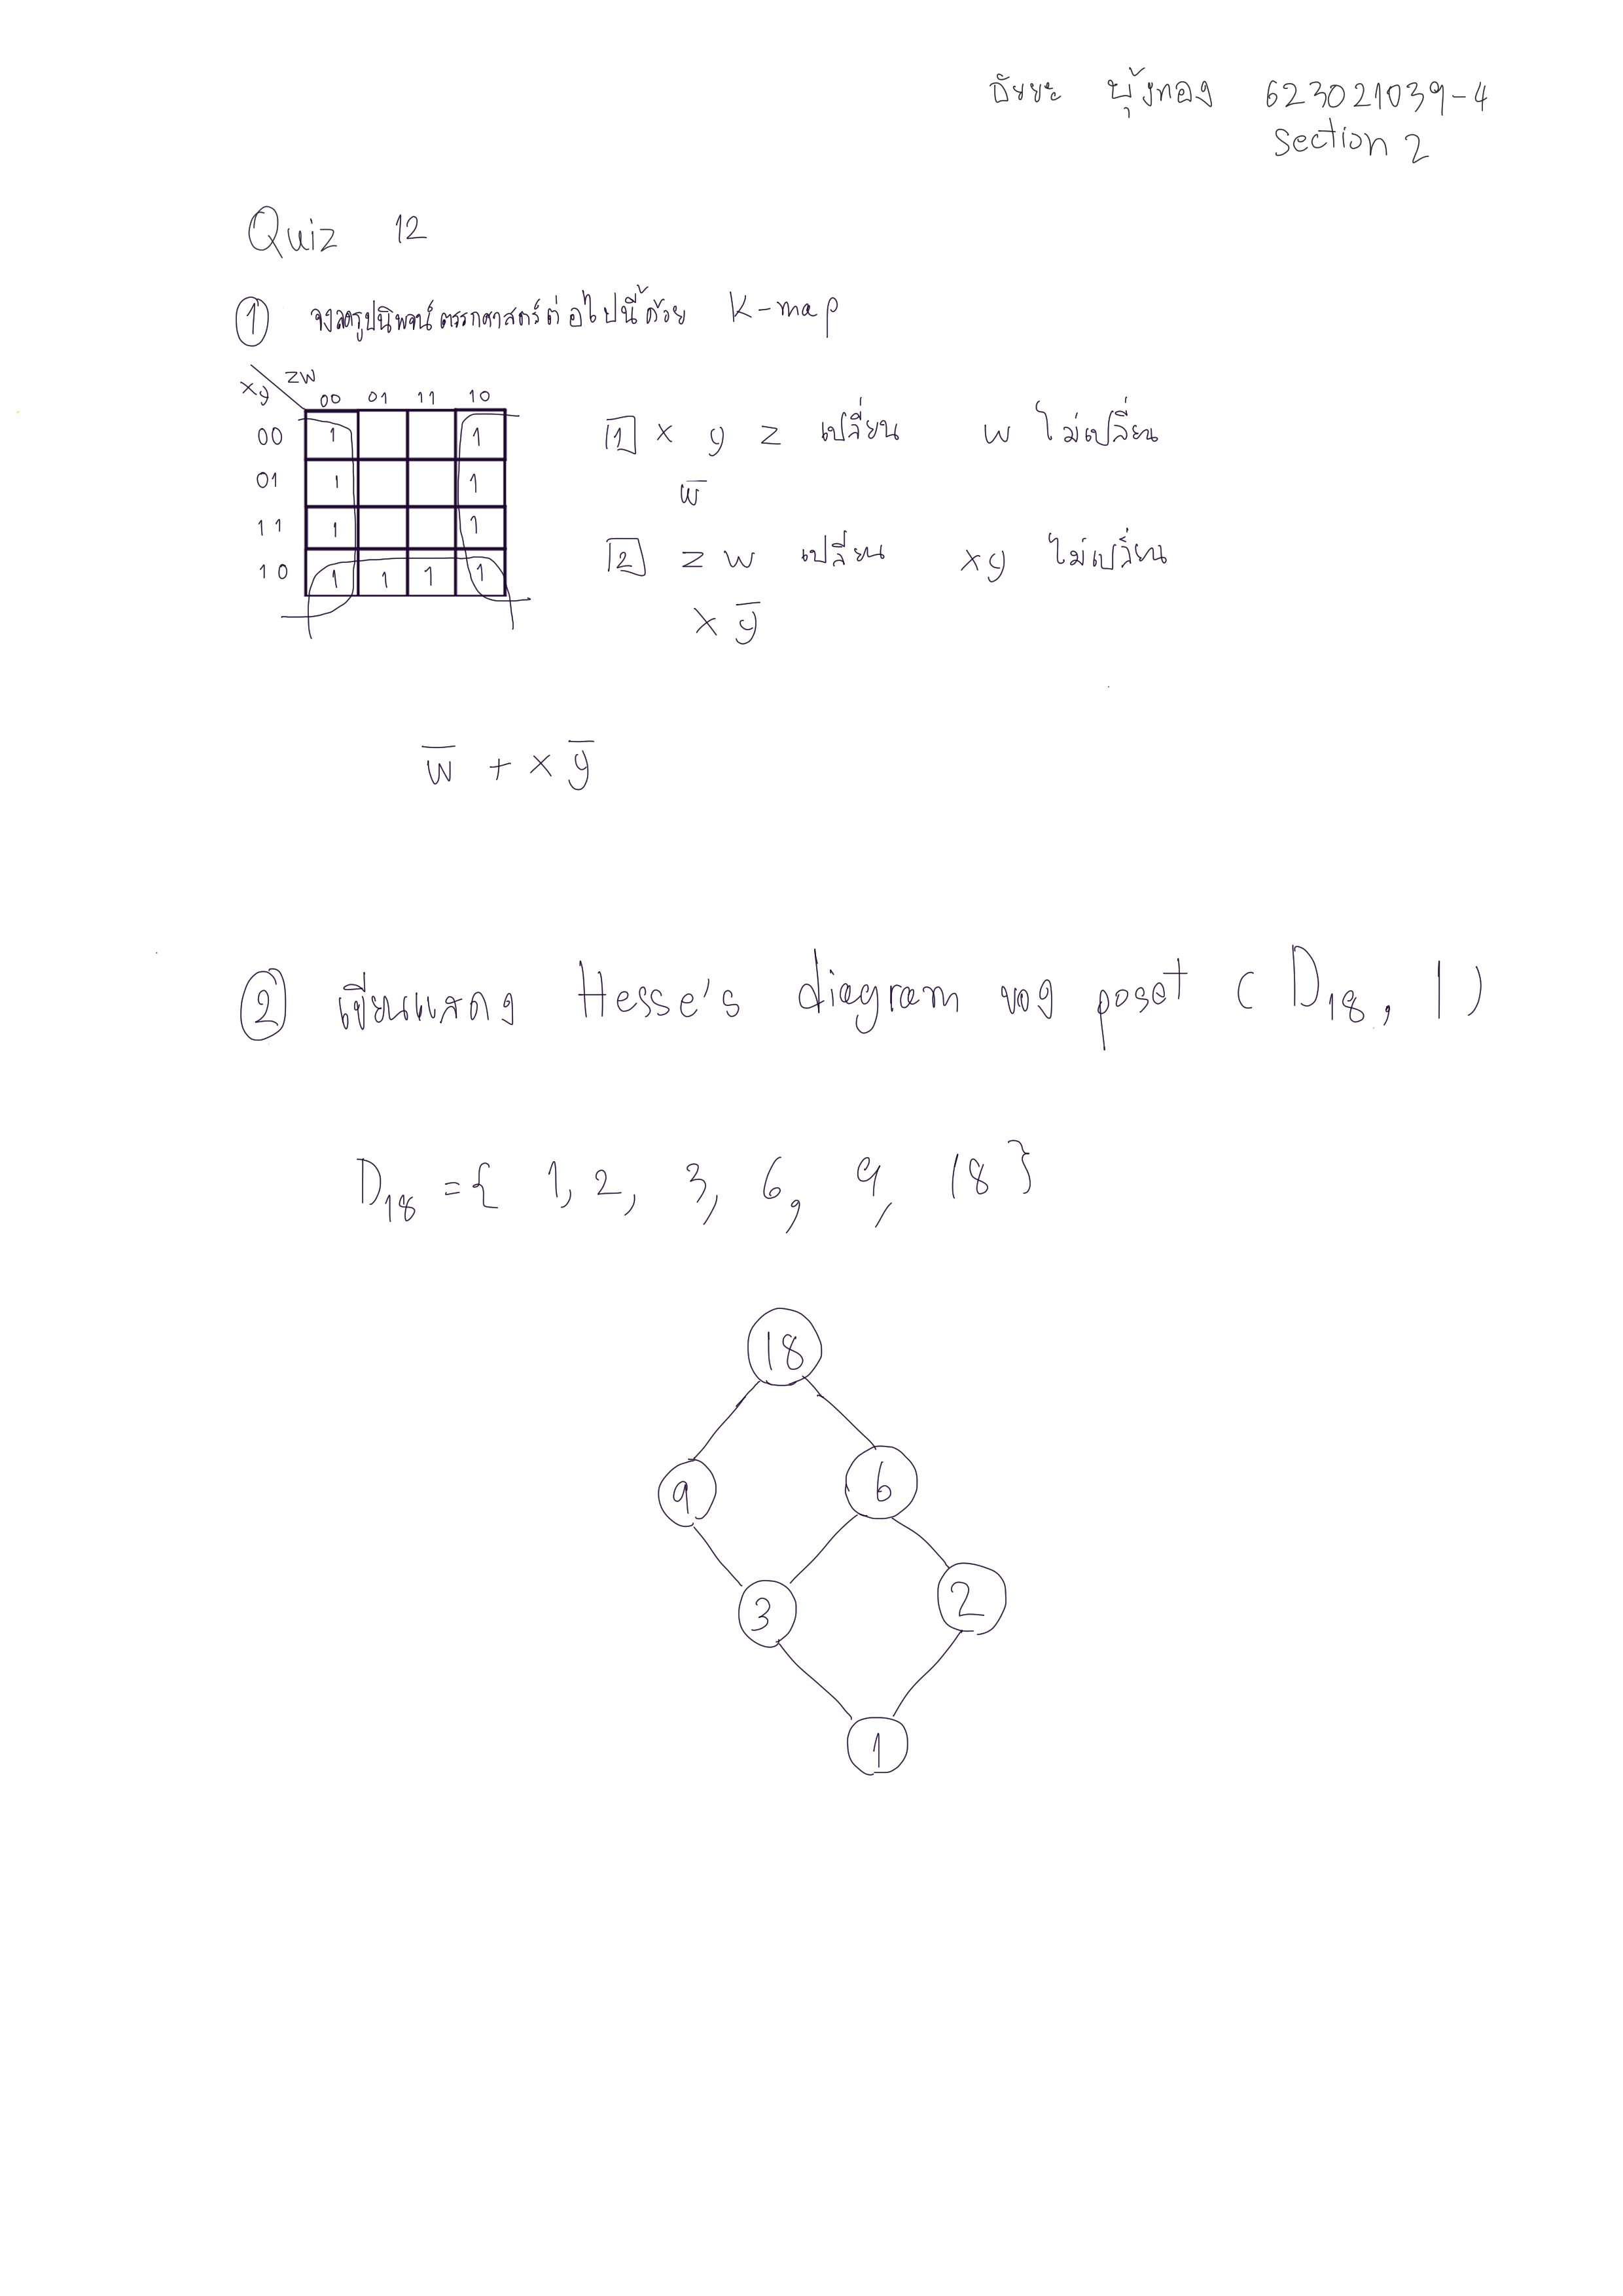 ธัยยะ พุ้งทอง 623021039-4
Section 2
Quiz 12
① จงลดรูปนิพจน์ตรรกศาสตร์ต่อไปนี้ด้วย K-map
xy zw
00 01 11 10
00 1 1
01 1 1
11 1 1
10 1 1 1 1
1 x y z เปลี่ยน w ไม่เปลี่ยน
w̅
2 z w เปลี่ยน xy ไม่เปลี่ยน
x y̅
w̅ + x y̅
② เขียนแสดง Hesse's diagram ของ poset ( D₁₈, | )
D₁₈ = { 1, 2, 3, 6, 9, 18 }
18
9 6
3 2
1